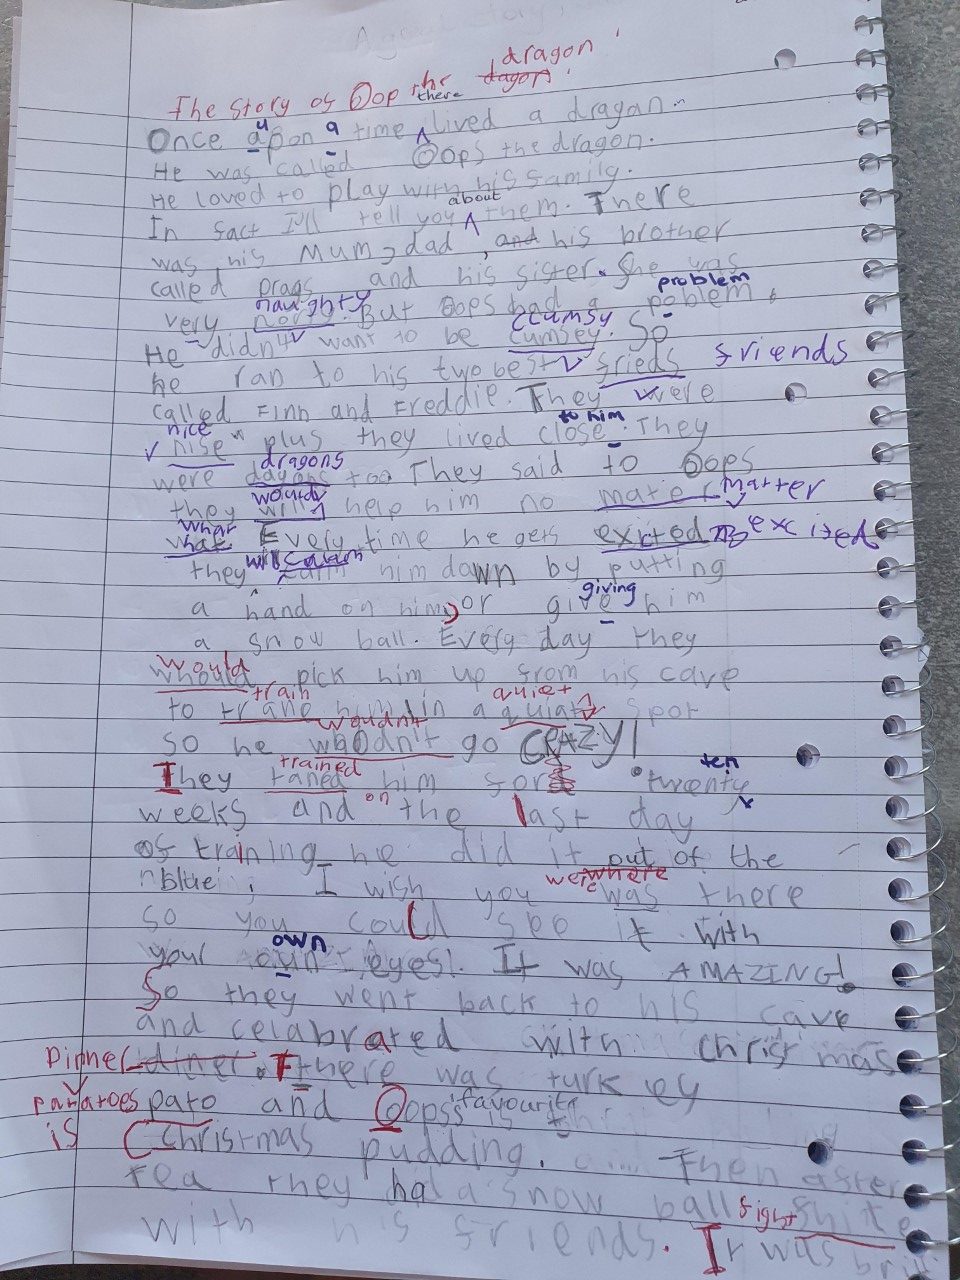 The story of Oop the dragon dagon.
Once upon a time there lived a dragan.
He was called Oops the dragon.
He loved to play with his family.
In fact I'll tell you about them. There
was his Mum, dad, and his brother
called Drags and his sister. She was
very naughty. But Oops had a problem poblem.
He didn't want to be clumsy cumsey. So
he ran to his two best frieds friends
called Finn and Freddie. They were
nice nise plus they lived close to him. They
were dragons dagons too. They said to Oops
they would will help him no mater matter
what what Every time he gets exicted excited
they will calm him down by putting
a hand on him, or giving give him
a snow ball. Every day they
would whould pick him up from his cave
to train trane him in a quiet quiat spot
so he woudn't whodn't go CRAZY!
They trained raned him for ten twenty
weeks and on the last day
of training he did it out of the
blue. I wish you were where was there
so you could see it with
your own oun eyes! It was AMAZING!
So they went back to his cave
and celabrated with christmas
Dinner diner. There was turkey
patatoes pato and Oops's favourite
is Christmas pudding. Then after
tea they had a snow ball fight fhite
with his friends. It was